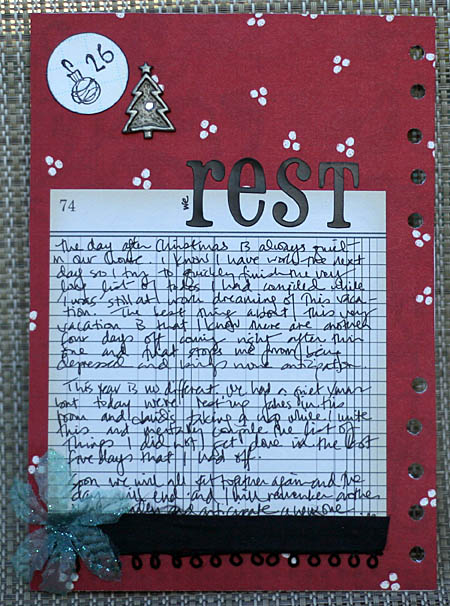 26
we
rest
74
The day after Christmas is always quiet
in our house. I know I have work the next
day so I try to quickly finish the very
long list of todos I had compiled while
I was still at work dreaming of this vaca-
tion. The best thing about this very
vacation is that I know there are another
four days off coming right after this
one and that stops me from being
depressed and brings more anticipation.
This year is no different. We had a quiet
but today we're resting. Jake's in his
room and David's taking a nap while I write
this and compile the list of
things I did not get done in the last
five days that I had off.
Soon we will all sit together again and the
day will end and I will remember another
and create a new one